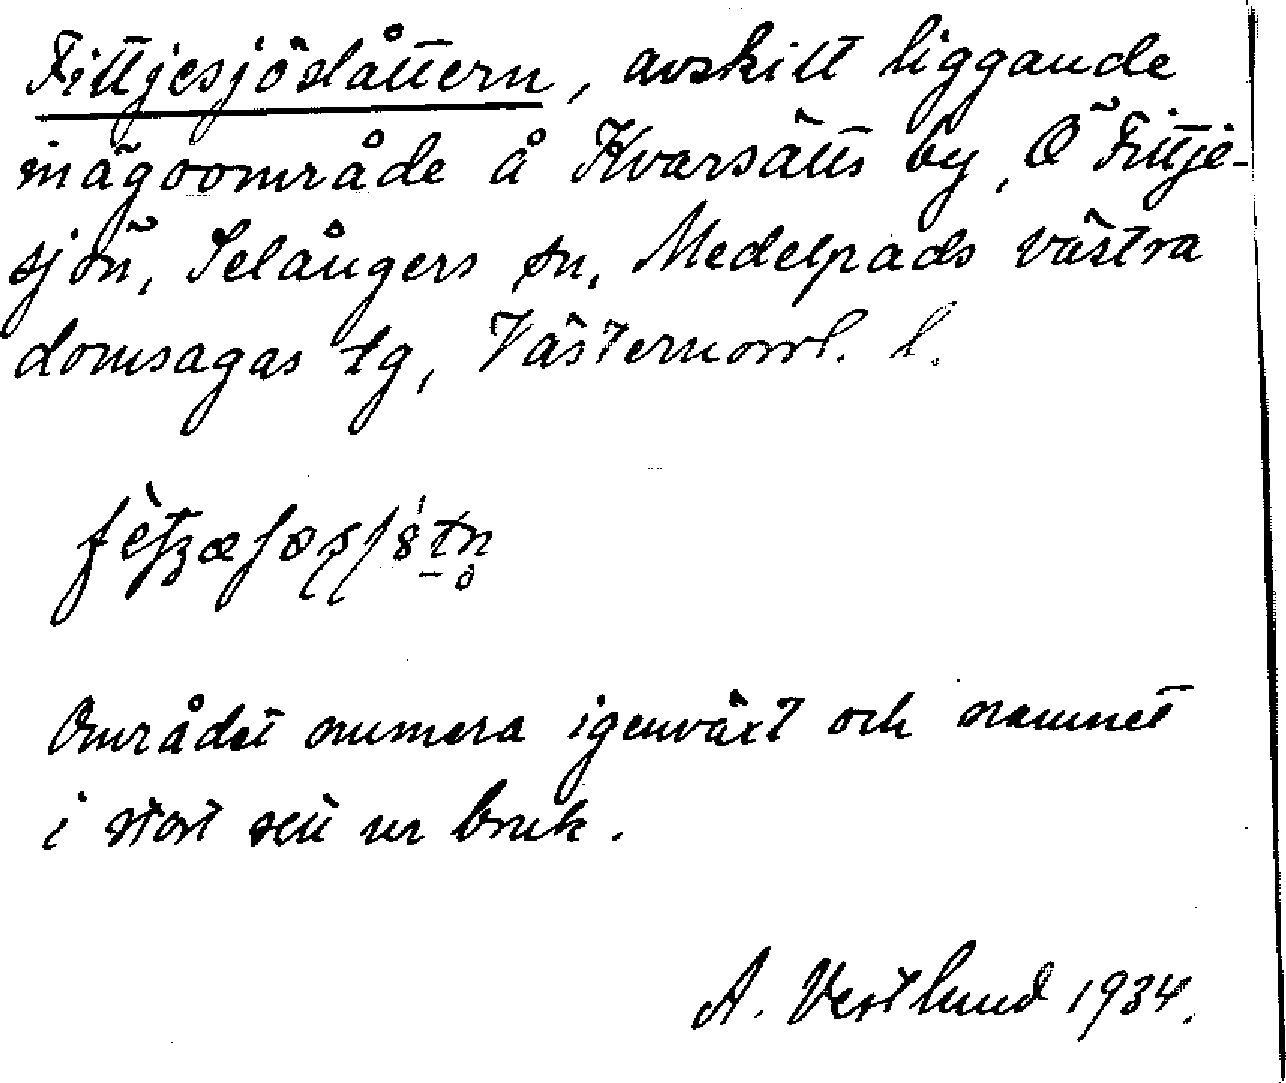 Fittjesjöslåttern, avskilt liggande
inägoområde å Kvarsätts by, Ö Fittje-
sjön, Selångers sn, Medelpads västra
domsagas tg, Västernorrl. l.
Området numera igenväxt och namnet
i stort sett ur bruk.
A. Vestlund 1934.